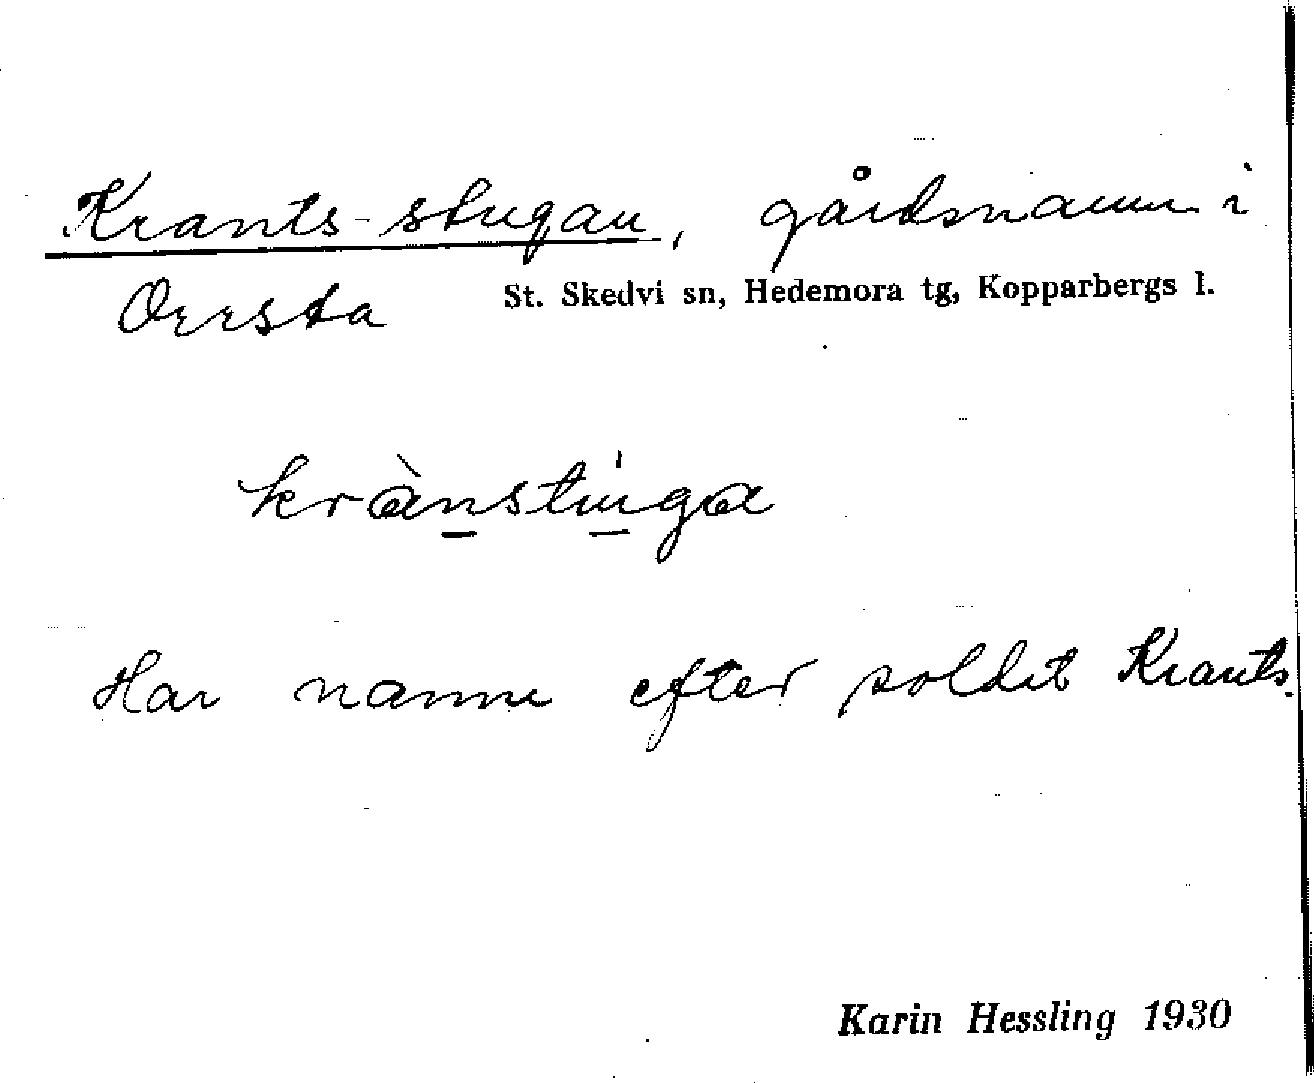 Krants-stugan, gårdsnamn i
Orrsta St. Skedvi sn, Hedemora tg, Kopparbergs l.
krànstúga
Har namn efter soldat Krants.
Karin Hessling 1930